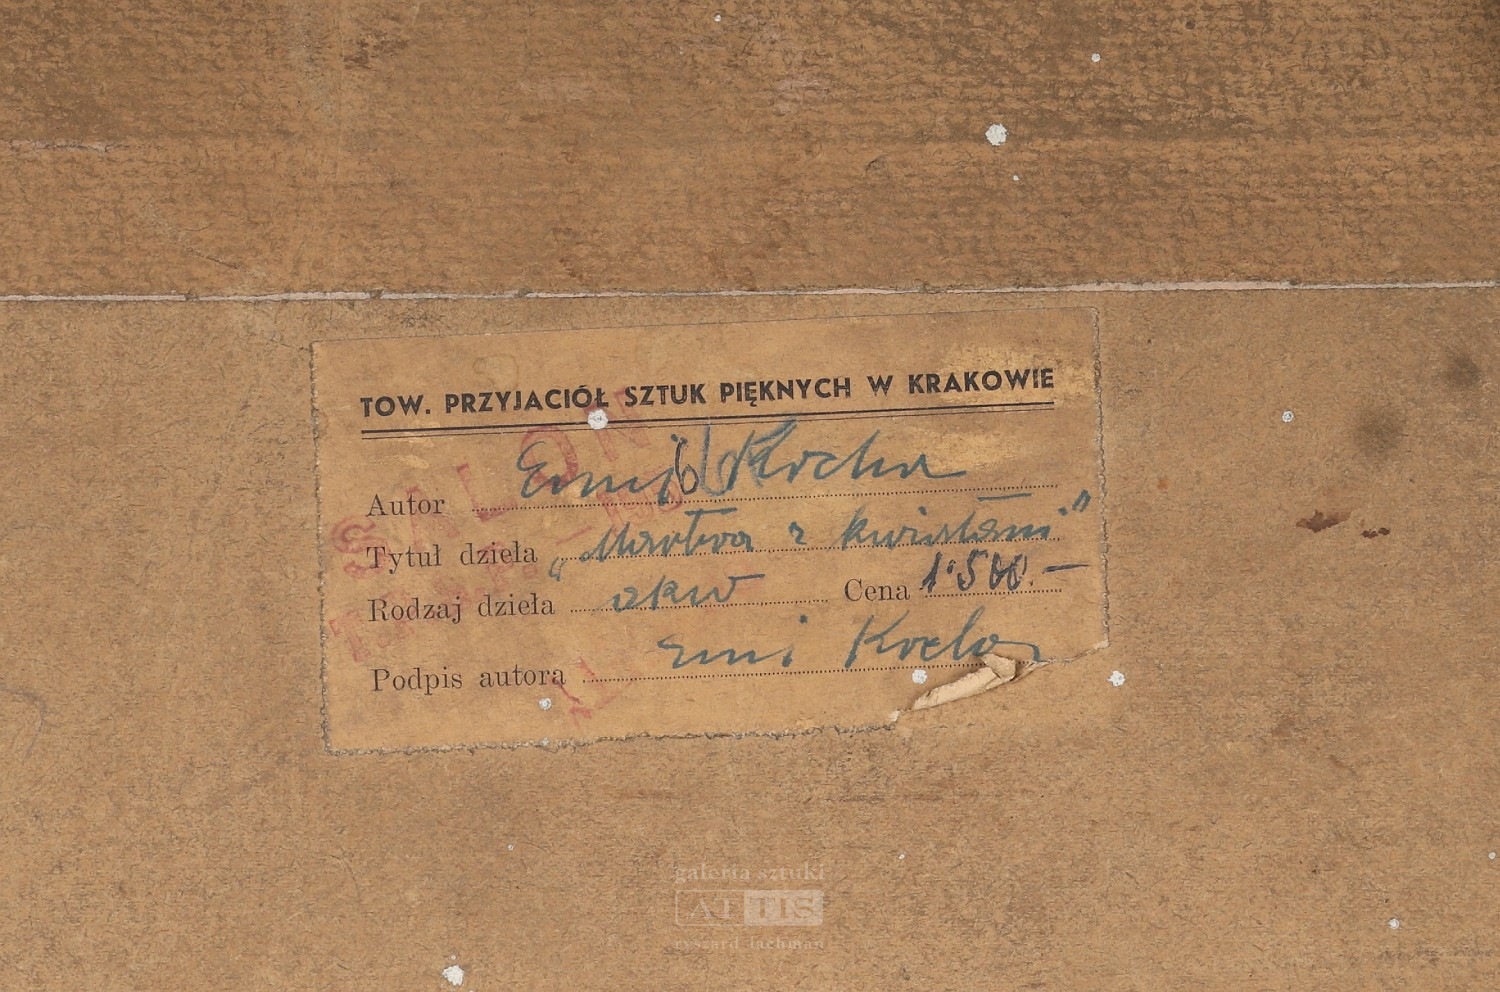 TOW. PRZYJACIÓŁ SZTUK PIĘKNYCH W KRAKOWIE
SALON
Autor Emil Krcha
Tytuł dzieła „Martwa z kwiatami”
Rodzaj dzieła akw Cena 1·500.—
Podpis autora Emil Krcha
galeria sztuki
ATTIS
ryszard lachman